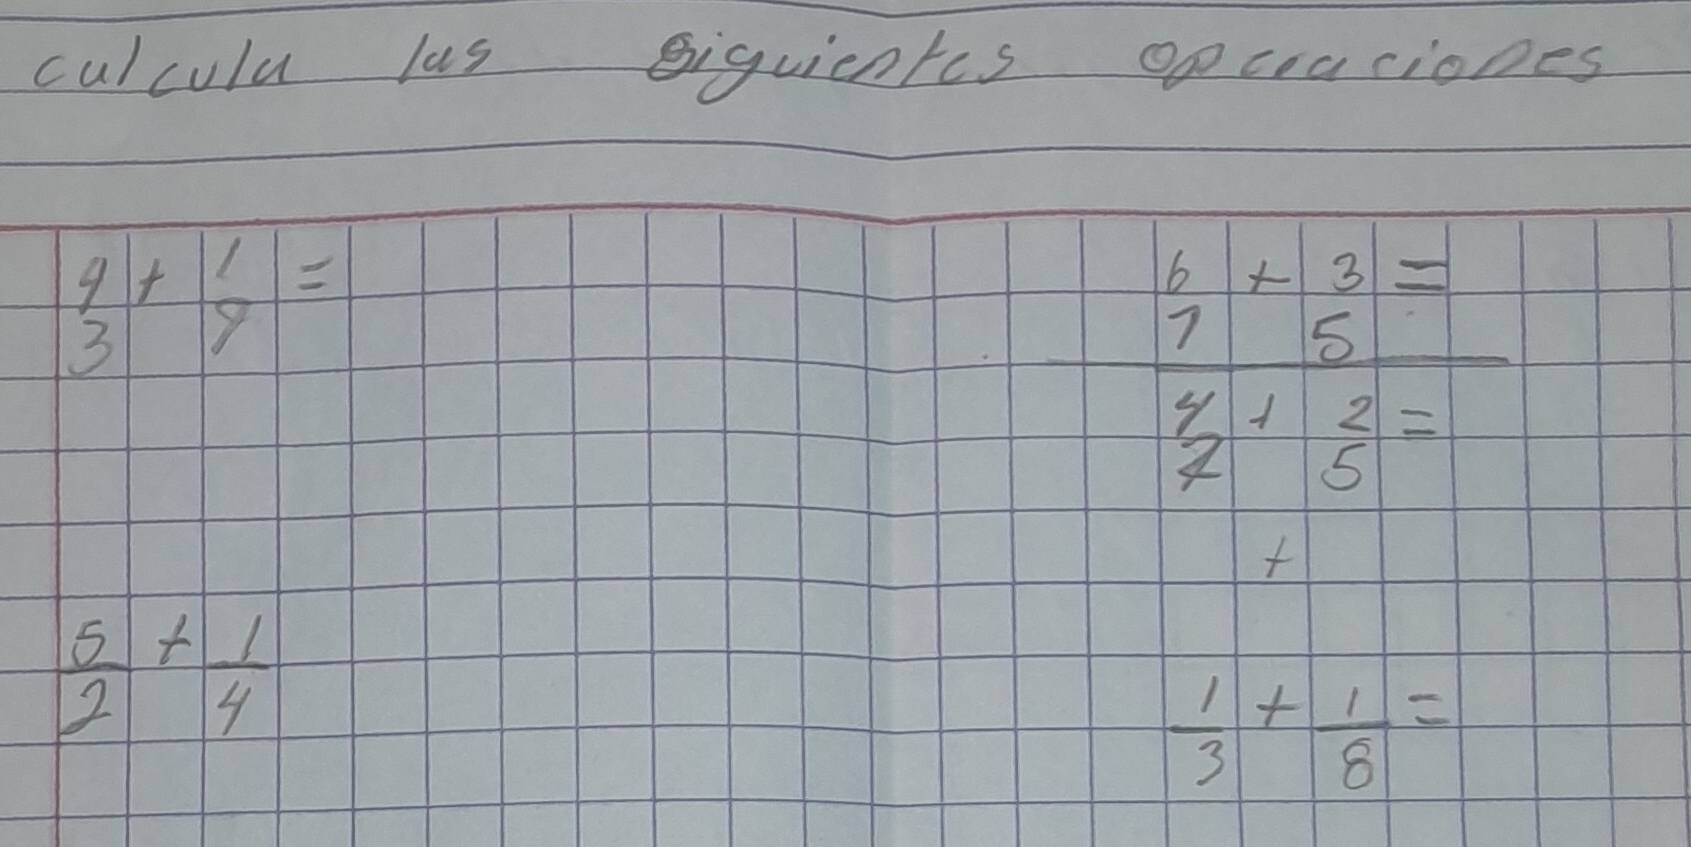 calcula las siguientes operaciones
9/3 + 1/9 =
6/7 + 3/5 =
4/7 + 2/5 =
+
5/2 + 1/4
1/3 + 1/8 =